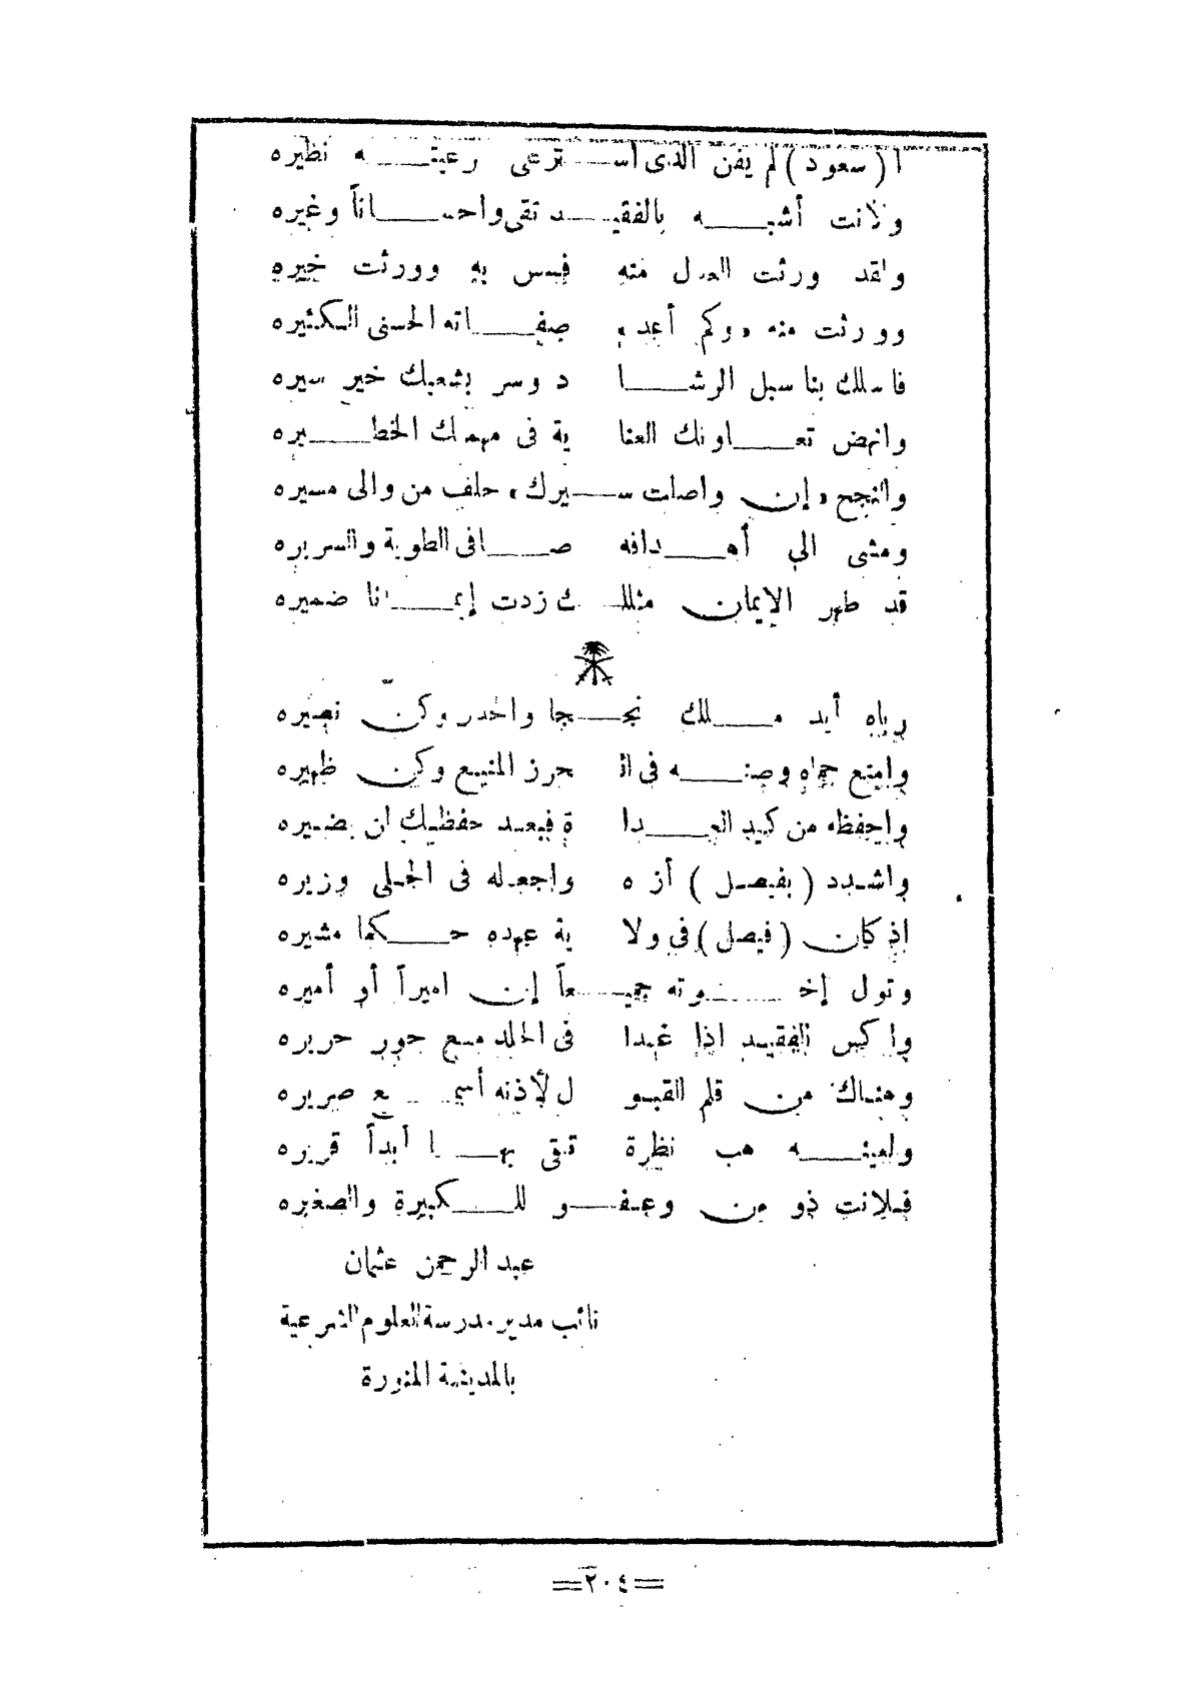 أ ( سعود ) لم يفن الذى اســترعى رعيتــه نظيره
ولانت أشبــه بالفقيــد تقى واحســاناً وغيره
ولقد ورثت العدل منه فيمس به وورثت خيره
وورثت منه « وكم أعد » صفــاته الحسنى الكثيره
فاسلك بنا سبل الرشــا د وسر بشعبك خير سيره
وانهض تعــاونك العنا ية فى مهمتك الخطــيره
والنجح « إن واصلت ســيرك » حلف من والى مسيره
ومشى الى أهــدافه صــافى الطوية والسريره
قد طهر الإيمان مثلــك زدت إيمــانا ضميره
رباه أيد مــلك نجــجا وكن نصيره
وامنع حماه وصنــه فى الـ حرز المنيع وكن ظهيره
واحفظه من كيد العــدا ة فبعد حفظك ان يضيره
واشدد ( بفيصل ) أزره واجعله فى الجلى وزيره
اذ كان ( فيصل ) في ولا ية عهده حــكما مشيره
وتول إخــوته جميــعاً إن اميراً أو أميره
واكس الفقيد اذا غدا فى الخلد مع حور حريره
وهناك من قلم القبو ل لأذنه أسمــع صريره
ولعينــه هب نظرة تبقى بهــا أبداً قريره
فلانت ذو من وعفــو للــكبيرة والصغيره
عبد الرحمن عثمان
نائب مدير مدرسة العلوم الشرعية
بالمدينة المنورة
=٢٠٤=